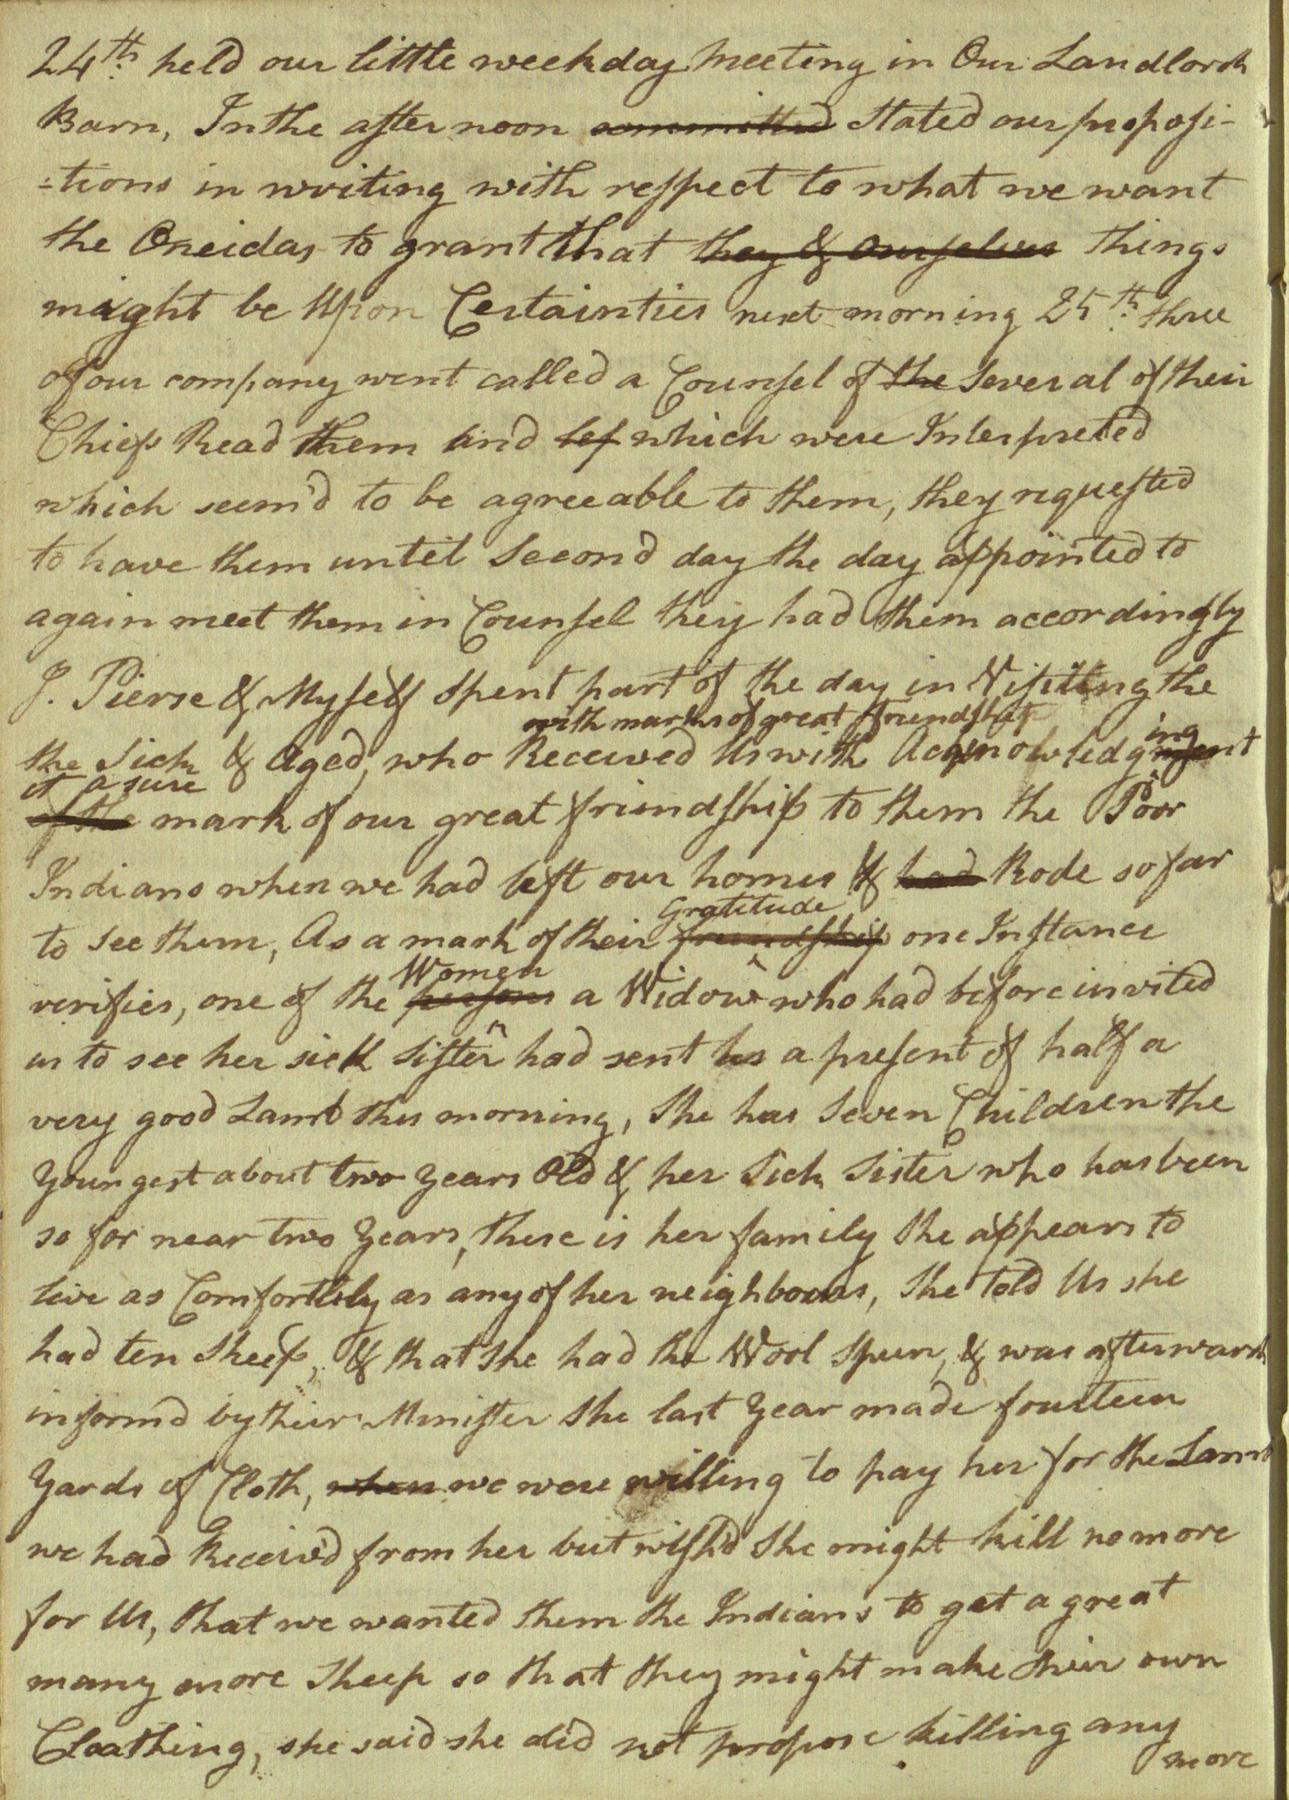 24th held our little weekday Meeting in Our Landlords
Barn, In the after noon committed Stated our proposi-
=tions in writing with respect to what we want
the Oneidas to grant that they & Ourselves things
might be Upon Certainties next morning 25th three
of our company went called a Counsel of the Several of their
Chiefs Read them and lef which were Interpreted
which seem'd to be agreeable to them, they requested
to have them until Second day the day appointed to
again meet them in Counsel they had them accordingly
J. Pierse & Myself Spent part of the day in Visiting the
with marks of great friendship
the Sick & Aged, who Received Us with Acknowledgment
ing
it a sure
of the mark of our great friendship to them the Poor
Indians when we had left our homes & had Rode so far
Gratitude
to See them, As a mark of their friendship one Instance
Women
verifies, one of the persons a Widow who had before invited
us to see her sick Sister had sent us a present of half a
very good Lamb this morning, She has Seven Children the
Youngest about two Years Old & her Sick Sister who has been
so for near two Years, there is her family She appears to
live as Comfortbly as any of her neighbours, She told Us she
had ten Sheep, & that She had the Wool Spun, & was afterwards
inform'd by their Minister She last Year made fourteen
Yards of Cloth, when we were willing to pay her for the Lamb
we had Receiv'd from her but wish'd She might kill no more
for Us, that we wanted them the Indians to get a great
many more Sheep so that they might make their own
Cloathing, she said she did not propose killing any
more